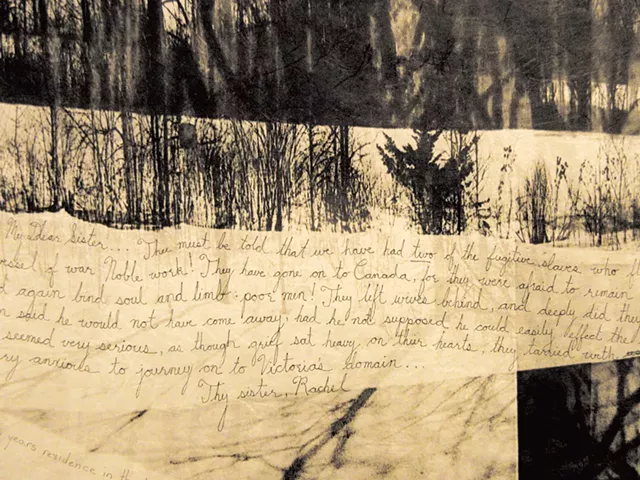 My Dear Sister... Thee must be told that we have had two of the fugitive slaves who
vessel of war Noble work! They have gone on to Canada, for they were afraid to remain
again bind soul and limb; poor men! They left wives behind, and deeply did they
said he would not have come away, had he not supposed he could easily effect the
seemed very serious, as though grief sat heavy on their hearts, they tarried with
ry anxious to journey on to Victoria's domain...
Thy sister, Rachel
years residence in th